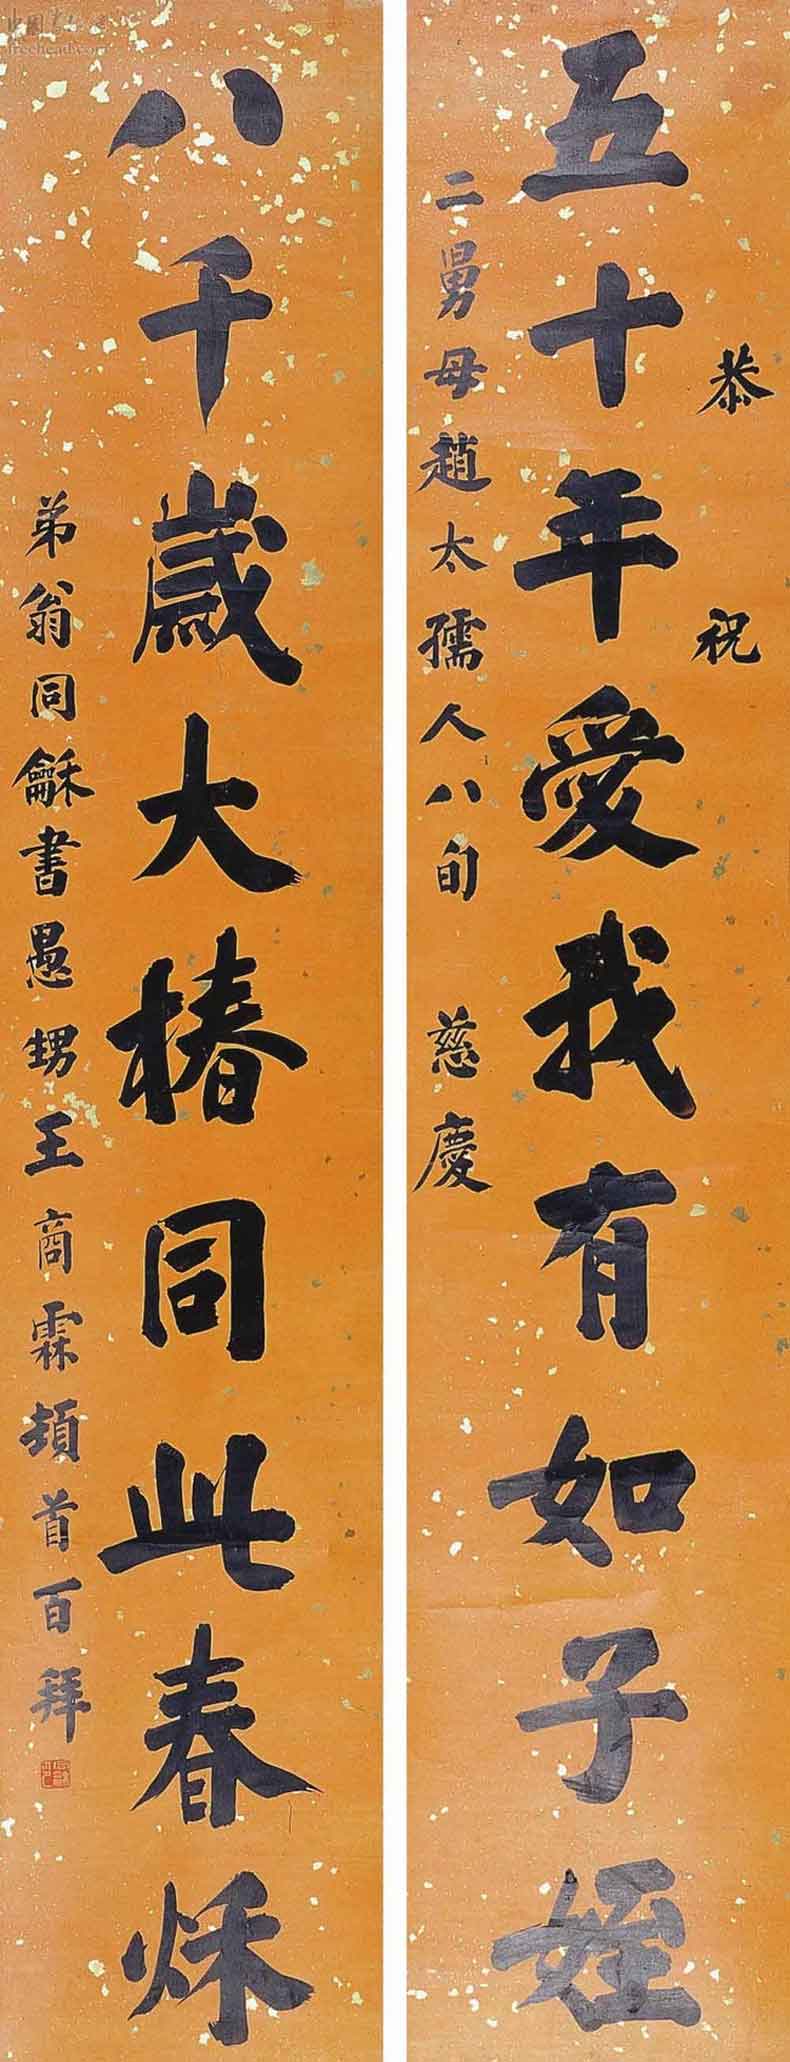 恭祝
五十年愛我有如子姪
二舅母趙太孺人八旬 慈慶
八千歲大椿同此春秌
弟翁同龢書愚甥王商霖頓首百拜